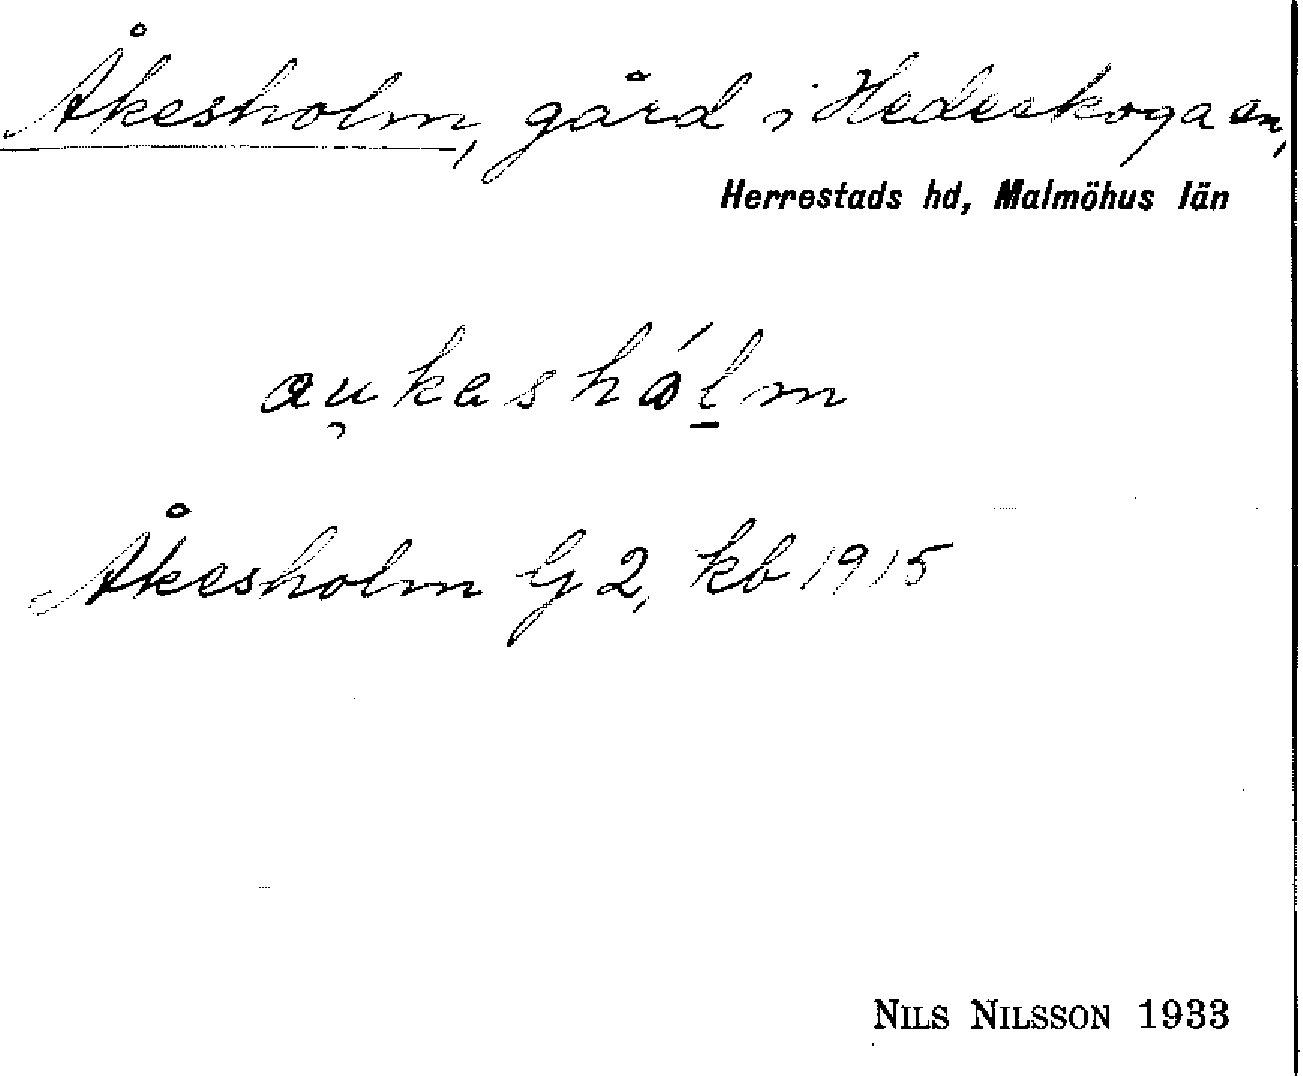 Åkesholm, gård i Hedeskoga sn,
Herrestads hd, Malmöhus län
au̯kashól̠m
Åkesholm G 2, kb 1915
NILS NILSSON 1933